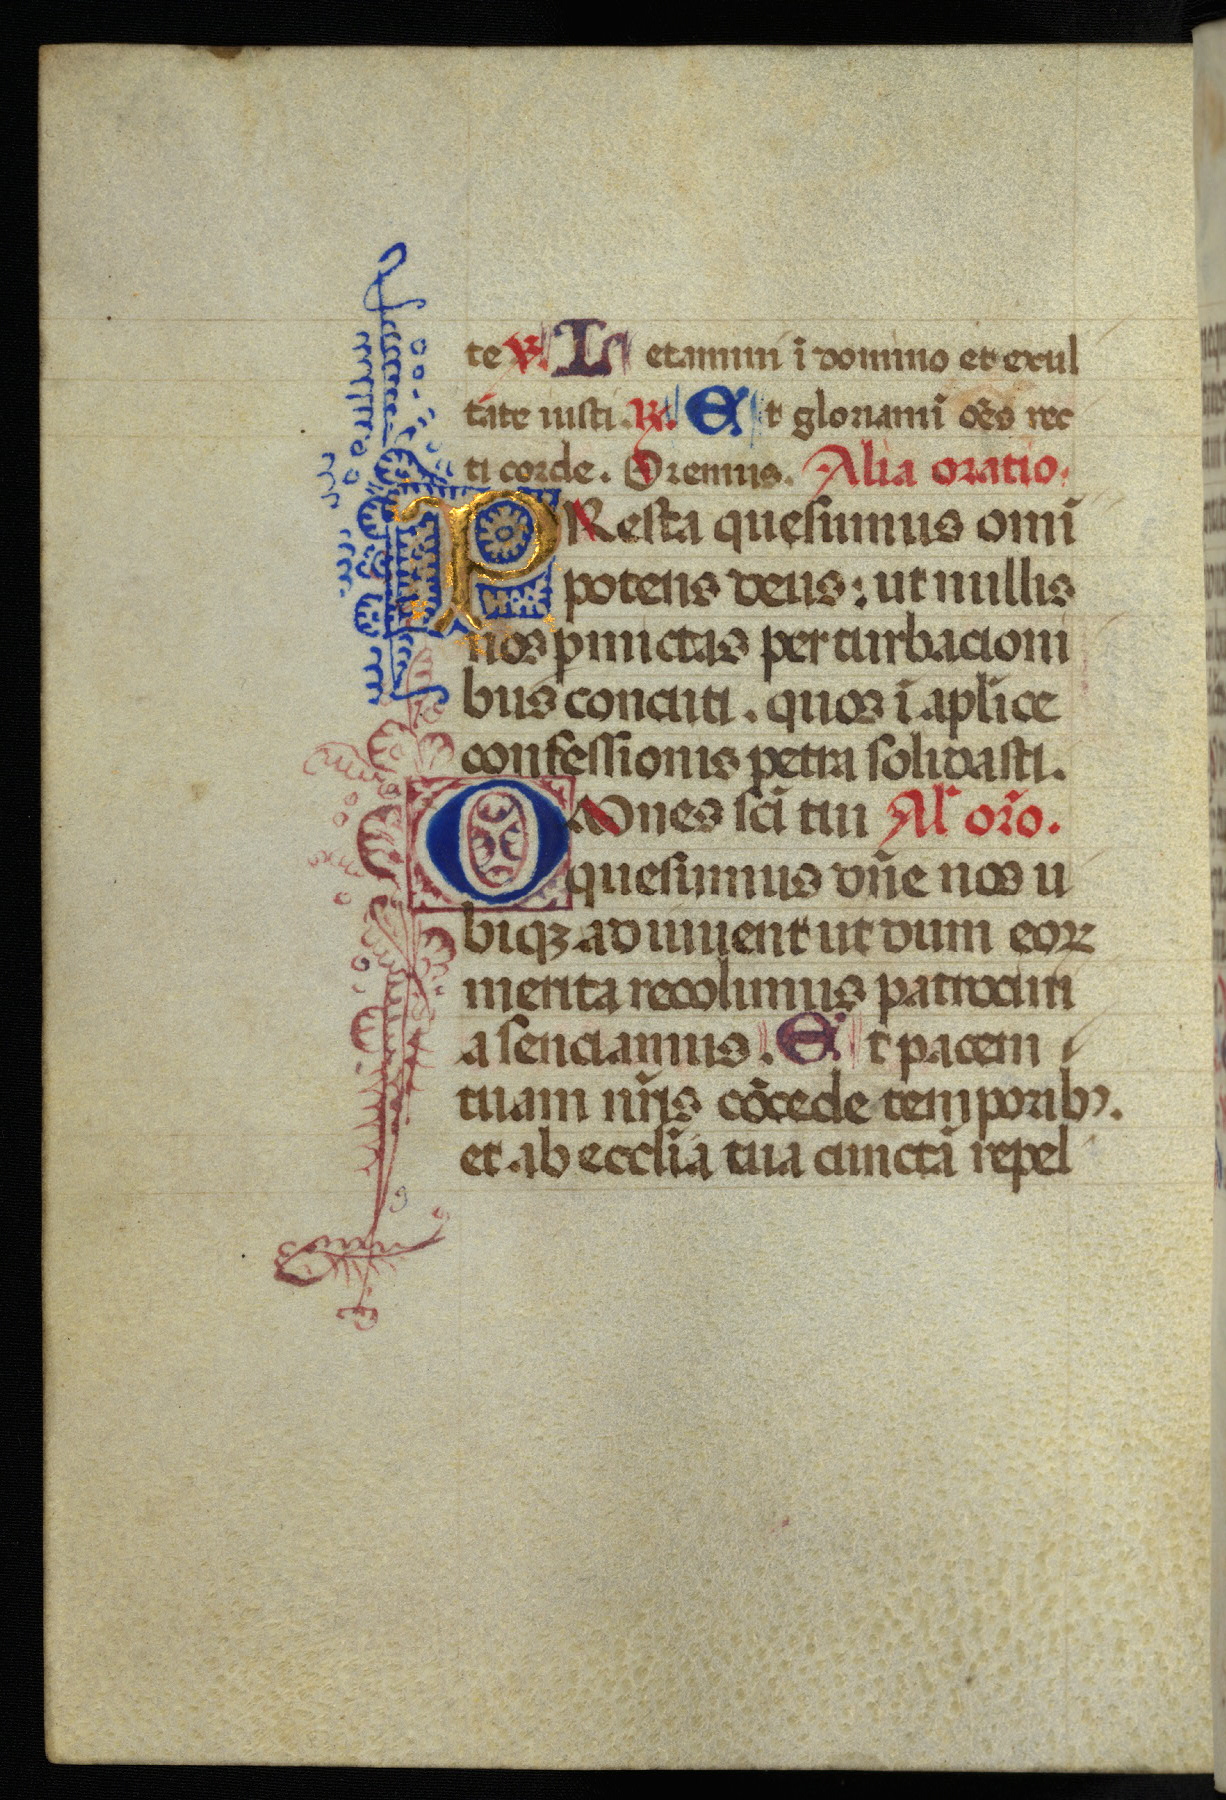 te V. Letamini ī domino et exul
tate iusti. R. Et gloriamī oēs rec
ti corde. Oremus. Alia oratio.
PResta quesumus omī
potens deus: ut nullis
nos pmictas perturbacioni
bus concuti. quos ī aplice
confessionis petra solidasti.
OMnes scī tui Al' orō.
quesumus dn̄e nos u
biqꝫ adiuuent ut dum eoꝝ
merita recolimus patrocini
a senciamus. Et pacem
tuam nr̄is cōcede temporibꝰ.
et ab eccl̄ia tua cunctā repel